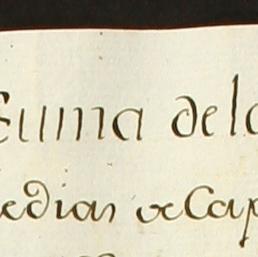 Suma delo
edias de Cap